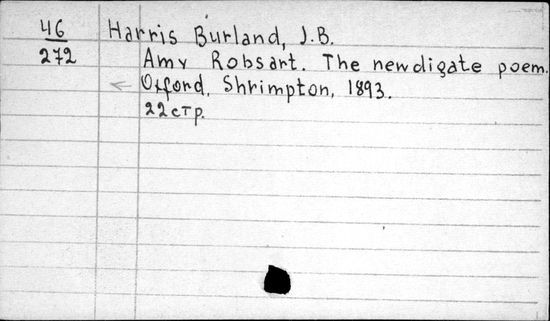 46 Harris Burland, J.B.
272 Amy Robsart. The newdigate poem.
Oxford, Shrimpton, 1893.
22 стр.